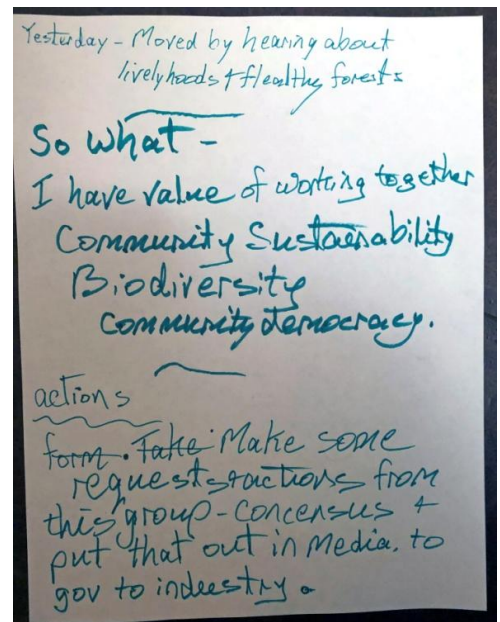 Yesterday - Moved by hearing about
livelyhoods + Healthy forests
So what -
I have value of working together
Community Sustainability
Biodiversity
Community democracy.
actions
form. Take Make some
requests actions from
this group - concensus +
put that out in Media, to
gov to industry.